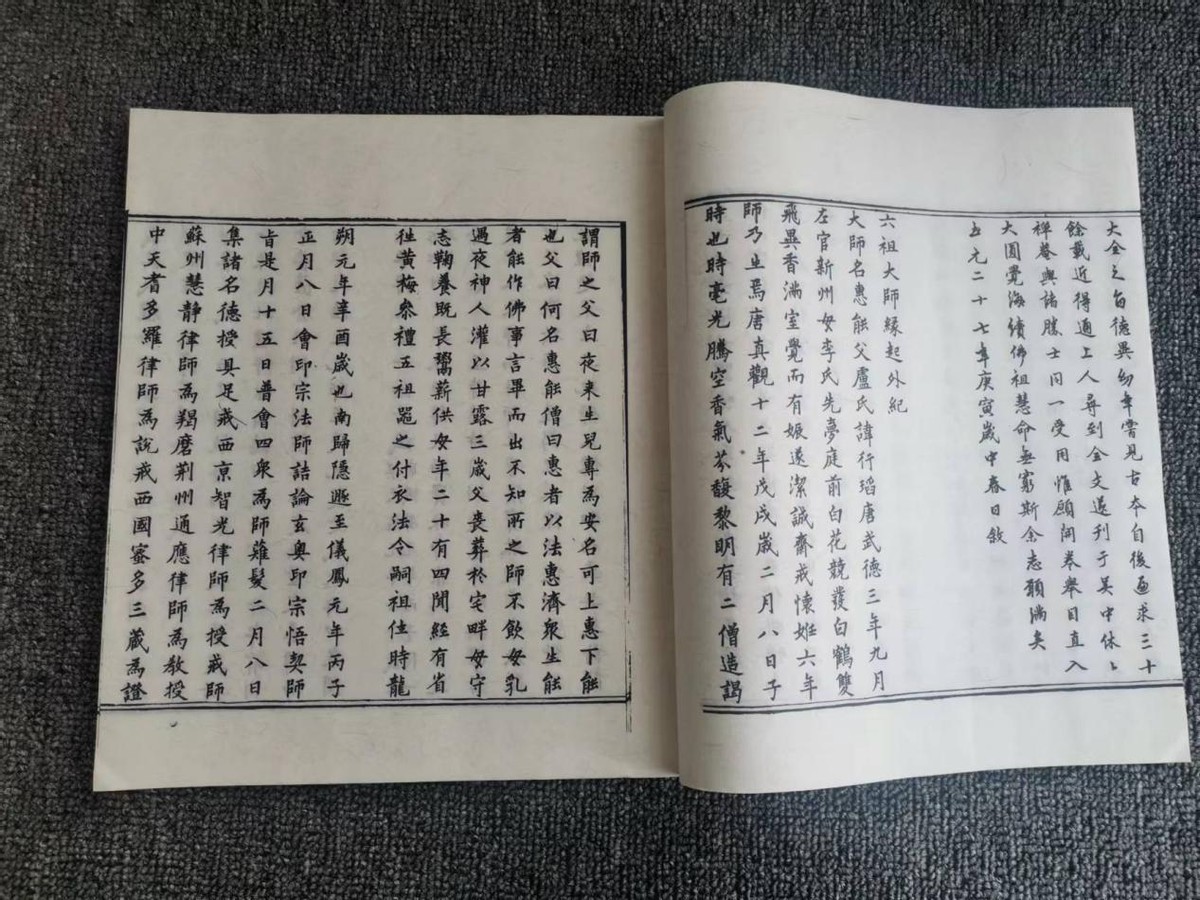 大全之旨德異幼年嘗見古本自後遍求三十
餘載近得通上人尋到全文遂刊于吴中休〻
禅菴與諸勝士同一受用惟願開卷舉目直入
大圓覺海續佛祖慧命無窮斯余志願満矣
至元二十七年庚寅歲中春日敘
六祖大師縁起外紀
大師名惠能父盧氏諱行瑫唐武德三年九月
左官新州母李氏先夢庭前白花競發白鶴雙
飛異香滿室覺而有娠遂潔誠齋戒懷姙六年
師乃生焉唐貞觀十二年戊戌歲二月八日子
時也時毫光騰空香氣芬馥黎明有二僧造謁
謂師之父曰夜来生兒專為安名可上惠下能
也父曰何名惠能僧曰惠者以法惠濟衆生能
者能作佛事言畢而出不知所之師不飲母乳
遇夜神人灌以甘露三歲父喪葬於宅畔母守
志鞠養既長鬻薪供母年二十有四聞經有省
往黄梅參禮五祖器之付衣法令嗣祖位時龍
朔元年辛酉歲也南歸隱遯至儀鳳元年丙子
正月八日會印宗法師詰論玄奥印宗悟契師
旨是月十五日普會四衆為師薙髮二月八日
集諸名德授具足戒西京智光律師為授戒師
蘇州慧静律師為羯磨荆州通應律師為教授
中天耆多羅律師為說戒西國蜜多三藏為證